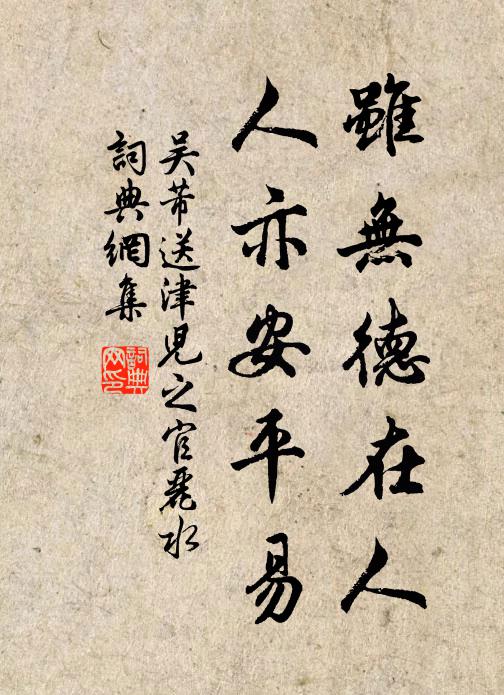 雖無德在人
人亦安平易
吳芾送津兒之官麗水
詞典網集
詞典網印